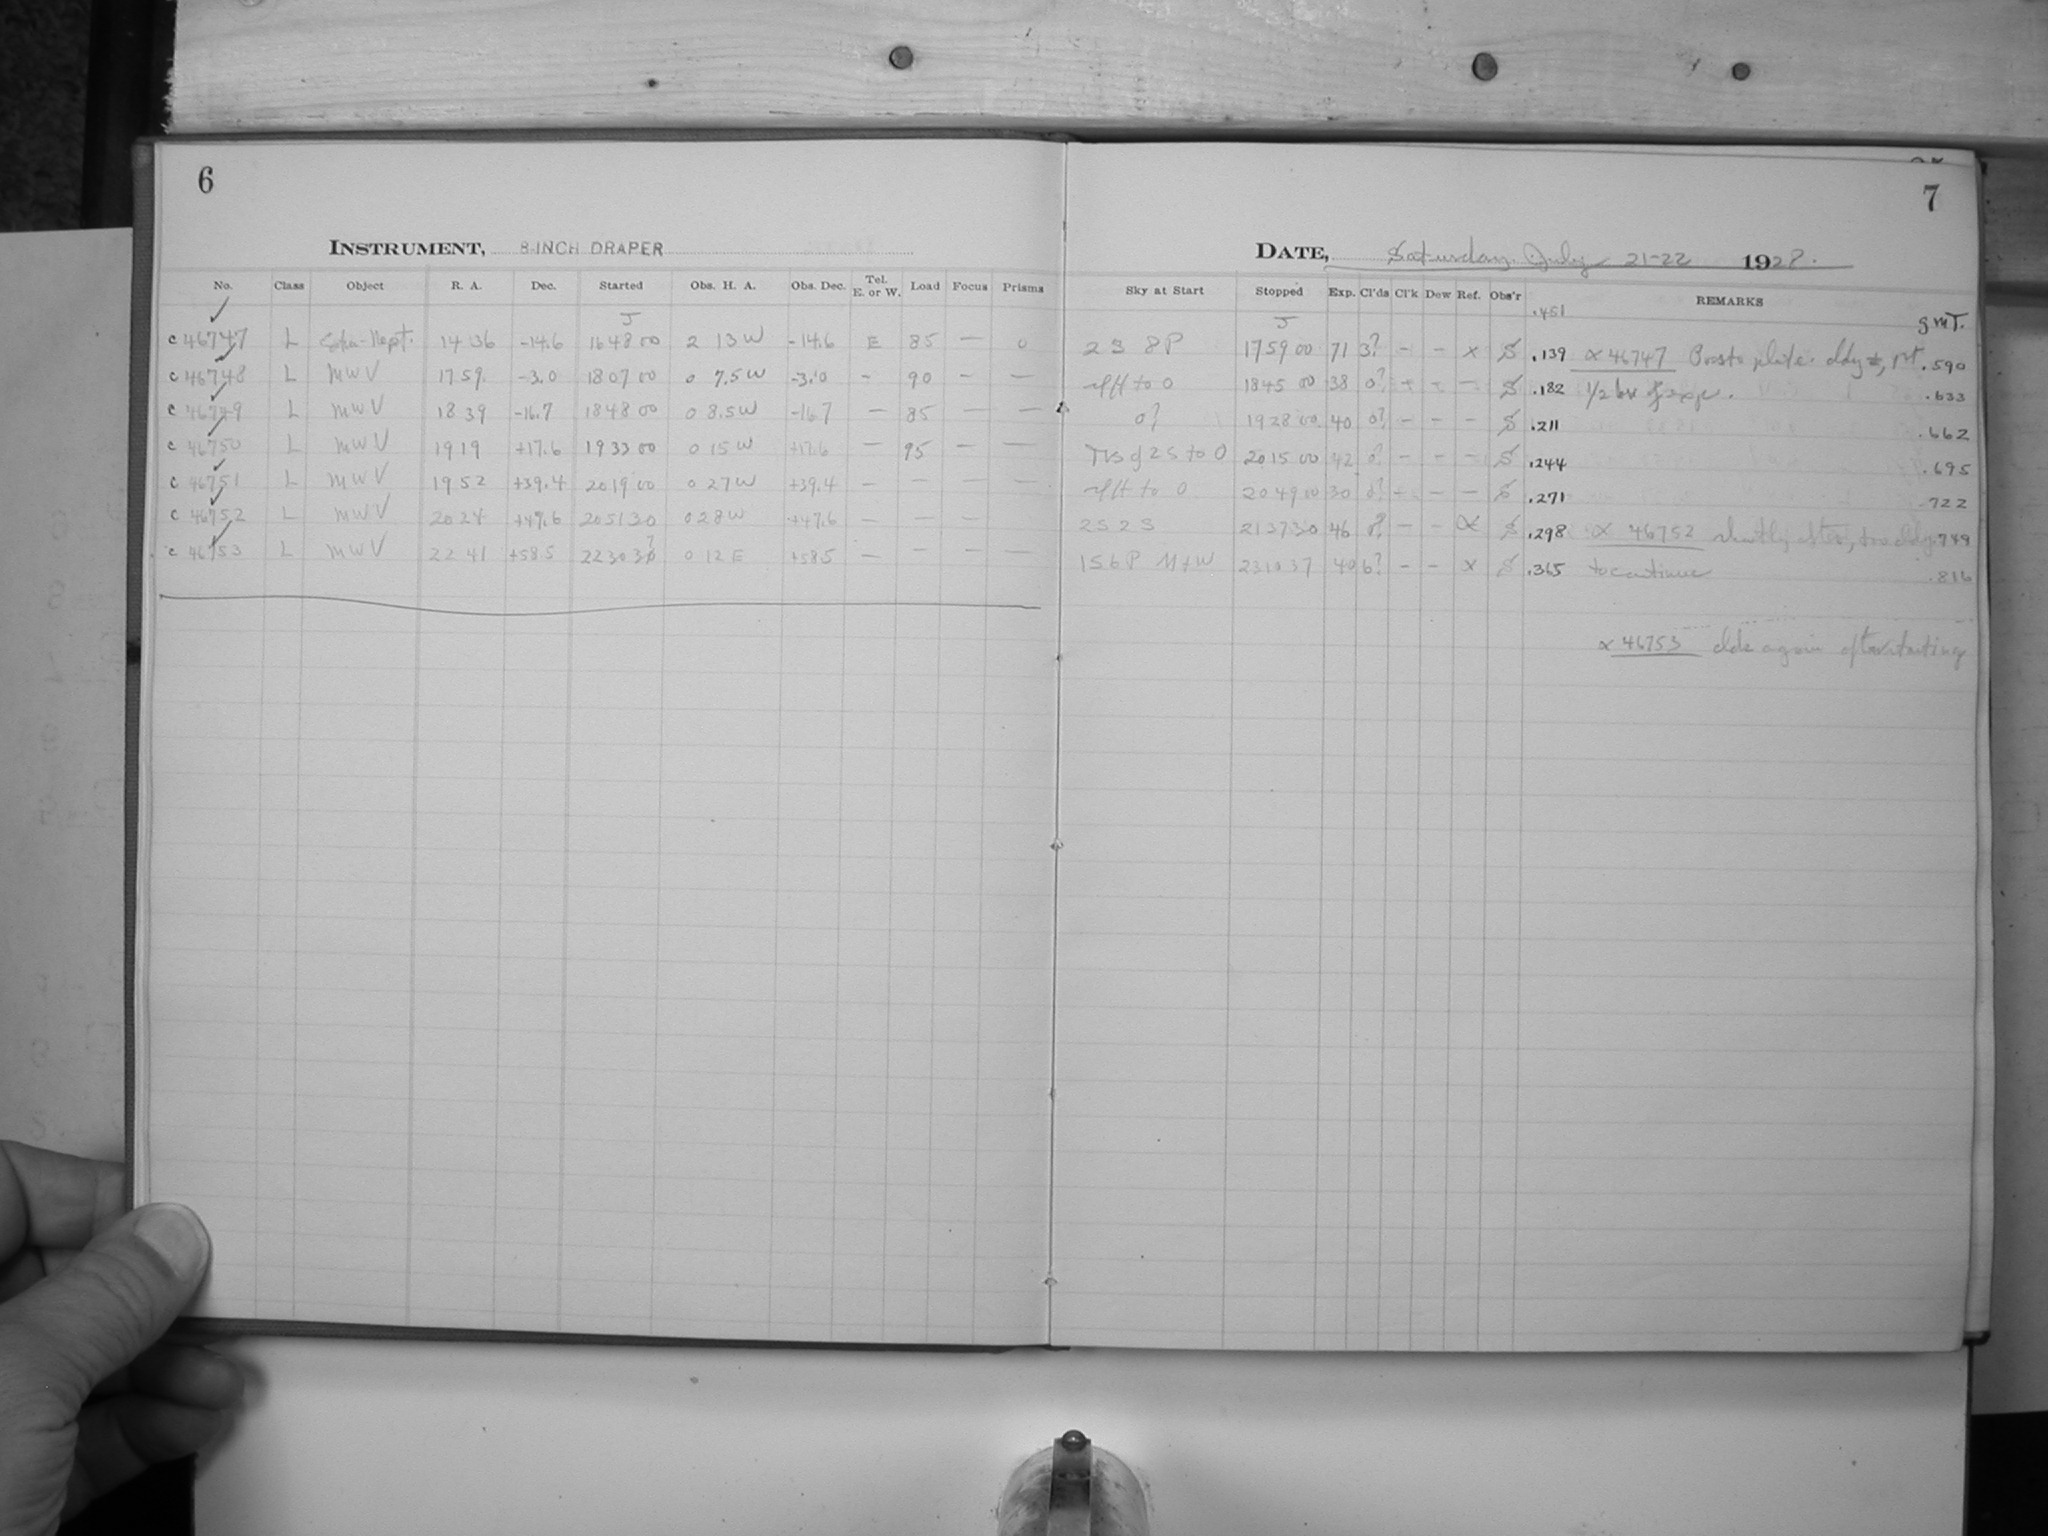 6
INSTRUMENT, 8-INCH DRAPER
No. Class Object R. A. Dec. Started Obs. H. A. Obs. Dec. Tel. E. or W. Load Focus Prisms
J
c 46747 L 14 36 -14.6 16 48 00 2 13 W -14.6 E 85 — 0
c 46748 L MWV 17 59 -3.0 18 07 00 0 7.5 W -3.0 - 90 — —
c 46749 L MWV 18 39 -16.7 18 48 00 0 8.5 W -16.7 — 85 — —
c 46750 L MWV 19 19 +17.6 19 33 00 0 15 W +17.6 — 95 — —
c 46751 L MWV 19 52 +39.4 20 19 00 0 27 W +39.4 — — — —
c 46752 L MWV 20 24 +47.6 20 51 30 0 28 W +47.6 — — —
c 46753 L MWV 22 41 +58.5 22 30 0 12 E +58.5 — — — —
7
DATE, Saturday July 21-22 1928.
Sky at Start Stopped Exp. Cl'ds Cl'k Dew Ref. Obs'r REMARKS
J .451 GMT.
2 S 8 P 17 59 00 71 3? - - x S .139 x 46747 plate. cldy 1st .590
to 0 18 45 00 38 0? - - - S .182 1/2 hr of exp. .633
0? 19 28 00 40 0? - - - S .211 .662
2 S to 0 20 15 00 42 0? - - - S .244 .695
to 0 20 49 00 30 0? - - - S .271 .722
2 S 2 S 21 37 30 46 0? - - x S .298 x 46752 after, too cldy .749
1 S 6 P N+W 23 10 37 40 6? - - x S .365 to continue .816
x 46753 clds again after starting